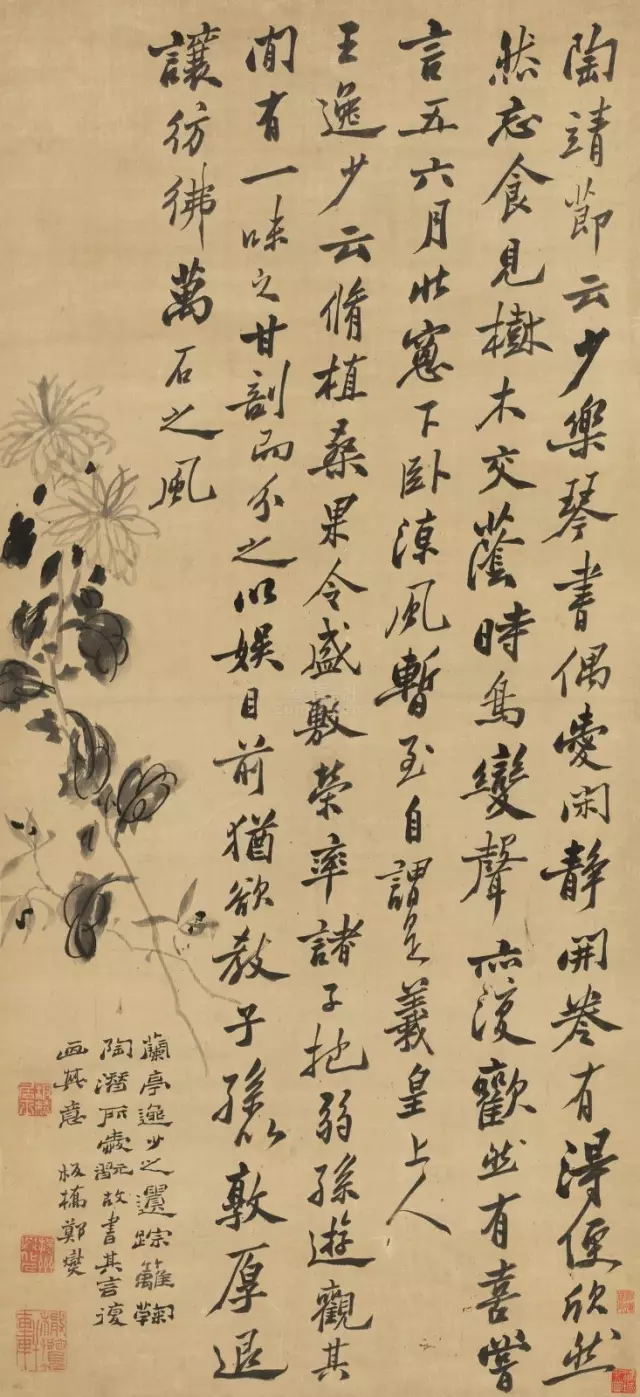 陶靖節云少樂琴書偶愛閑靜開卷有得便欣然
然忘食見樹木交蔭時鳥變聲亦復歡然有喜嘗
言五六月北窓下卧涼風暫至自謂是羲皇上人
王逸少云脩植桑果令盛敷榮率諸子抱弱孫遊觀其
間有一味之甘剖而分之以娛目前猶欲教子孫以敦厚退
讓彷彿萬石之風
蘭亭逸少之遺踪籬鞠
陶潛所愛玩故書其言復
画其意 板橋鄭燮